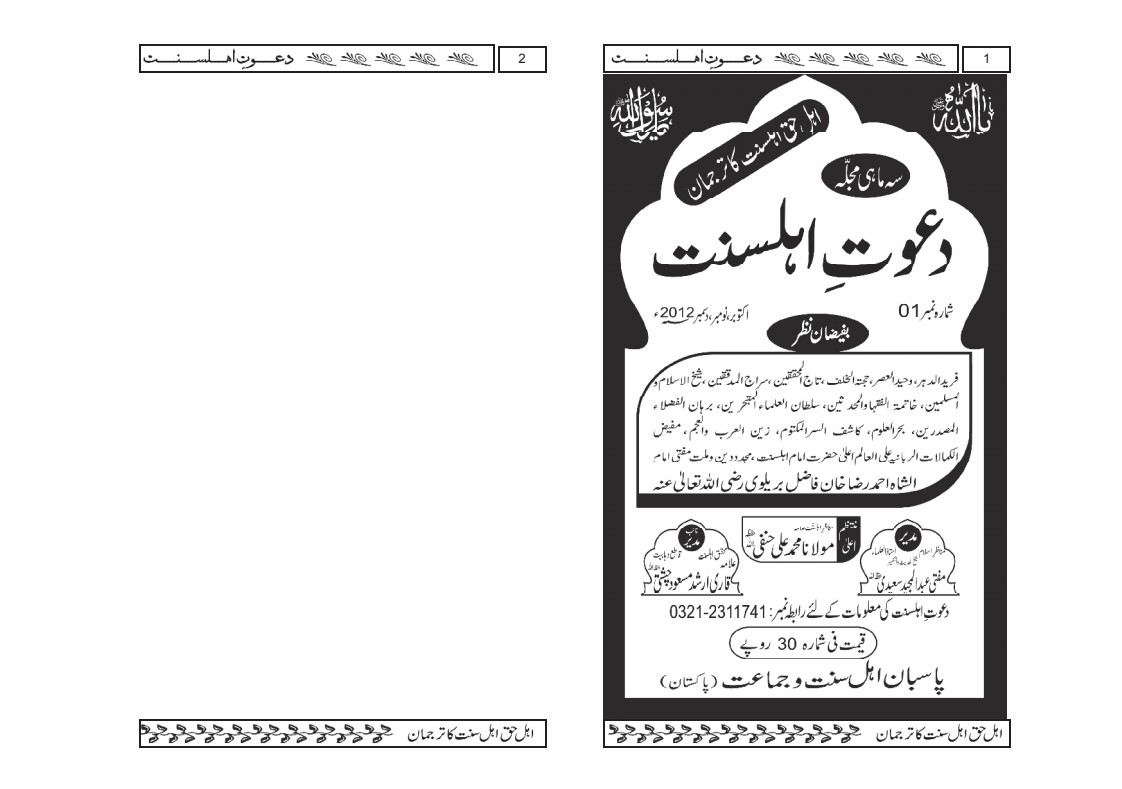 دعوتِ اهلسنت
1
یا اللہ
یا رسول اللہ
اہل حق اہلسنت کا ترجمان
سہ ماہی مجلّہ
دعوتِ اہلسنت
شمارہ نمبر 01
اکتوبر، نومبر، دسمبر 2012ء
بفیضان نظر
فرید الدہر، وحید العصر، حجتہ الخلف، تاج المحققین، سراج المدققین، شیخ الاسلام و
المسلمین، خاتمۃ الفقہا والمحدثین، سلطان العلماء المتبحرین، برہان الفضلاء
المصدرین، بحرالعلوم، کاشف السرالمکتوم، زین العرب والعجم، مفیض
الکمالات الربانیہ علی العالم اعلیٰ حضرت امام اہلسنت، مجدد دین وملت مفتی امام
الشاہ احمد رضا خان فاضل بریلوی رضی اللہ تعالیٰ عنہ
مدیر
مناظر اسلام استاذ العلماء
شیخ الحدیث والتفسیر
مفتی عبدالمجید سعیدی
منتظم اعلیٰ
مناظر اہلسنت علامہ
مولانا محمد علی حنفی
نائب مدیر
محقق اہلسنت قاطع دہابیت
علامہ
قاری ارشد مسعود چشتی
دعوتِ اہلسنت کی معلومات کے لئے رابطہ نمبر: 0321-2311741
قیمت فی شمارہ 30 روپے
پاسبان اہل سنت و جماعت (پاکستان)
اہل حق اہل سنت کا ترجمان
دعوتِ اهلسنت
2
اہل حق اہل سنت کا ترجمان